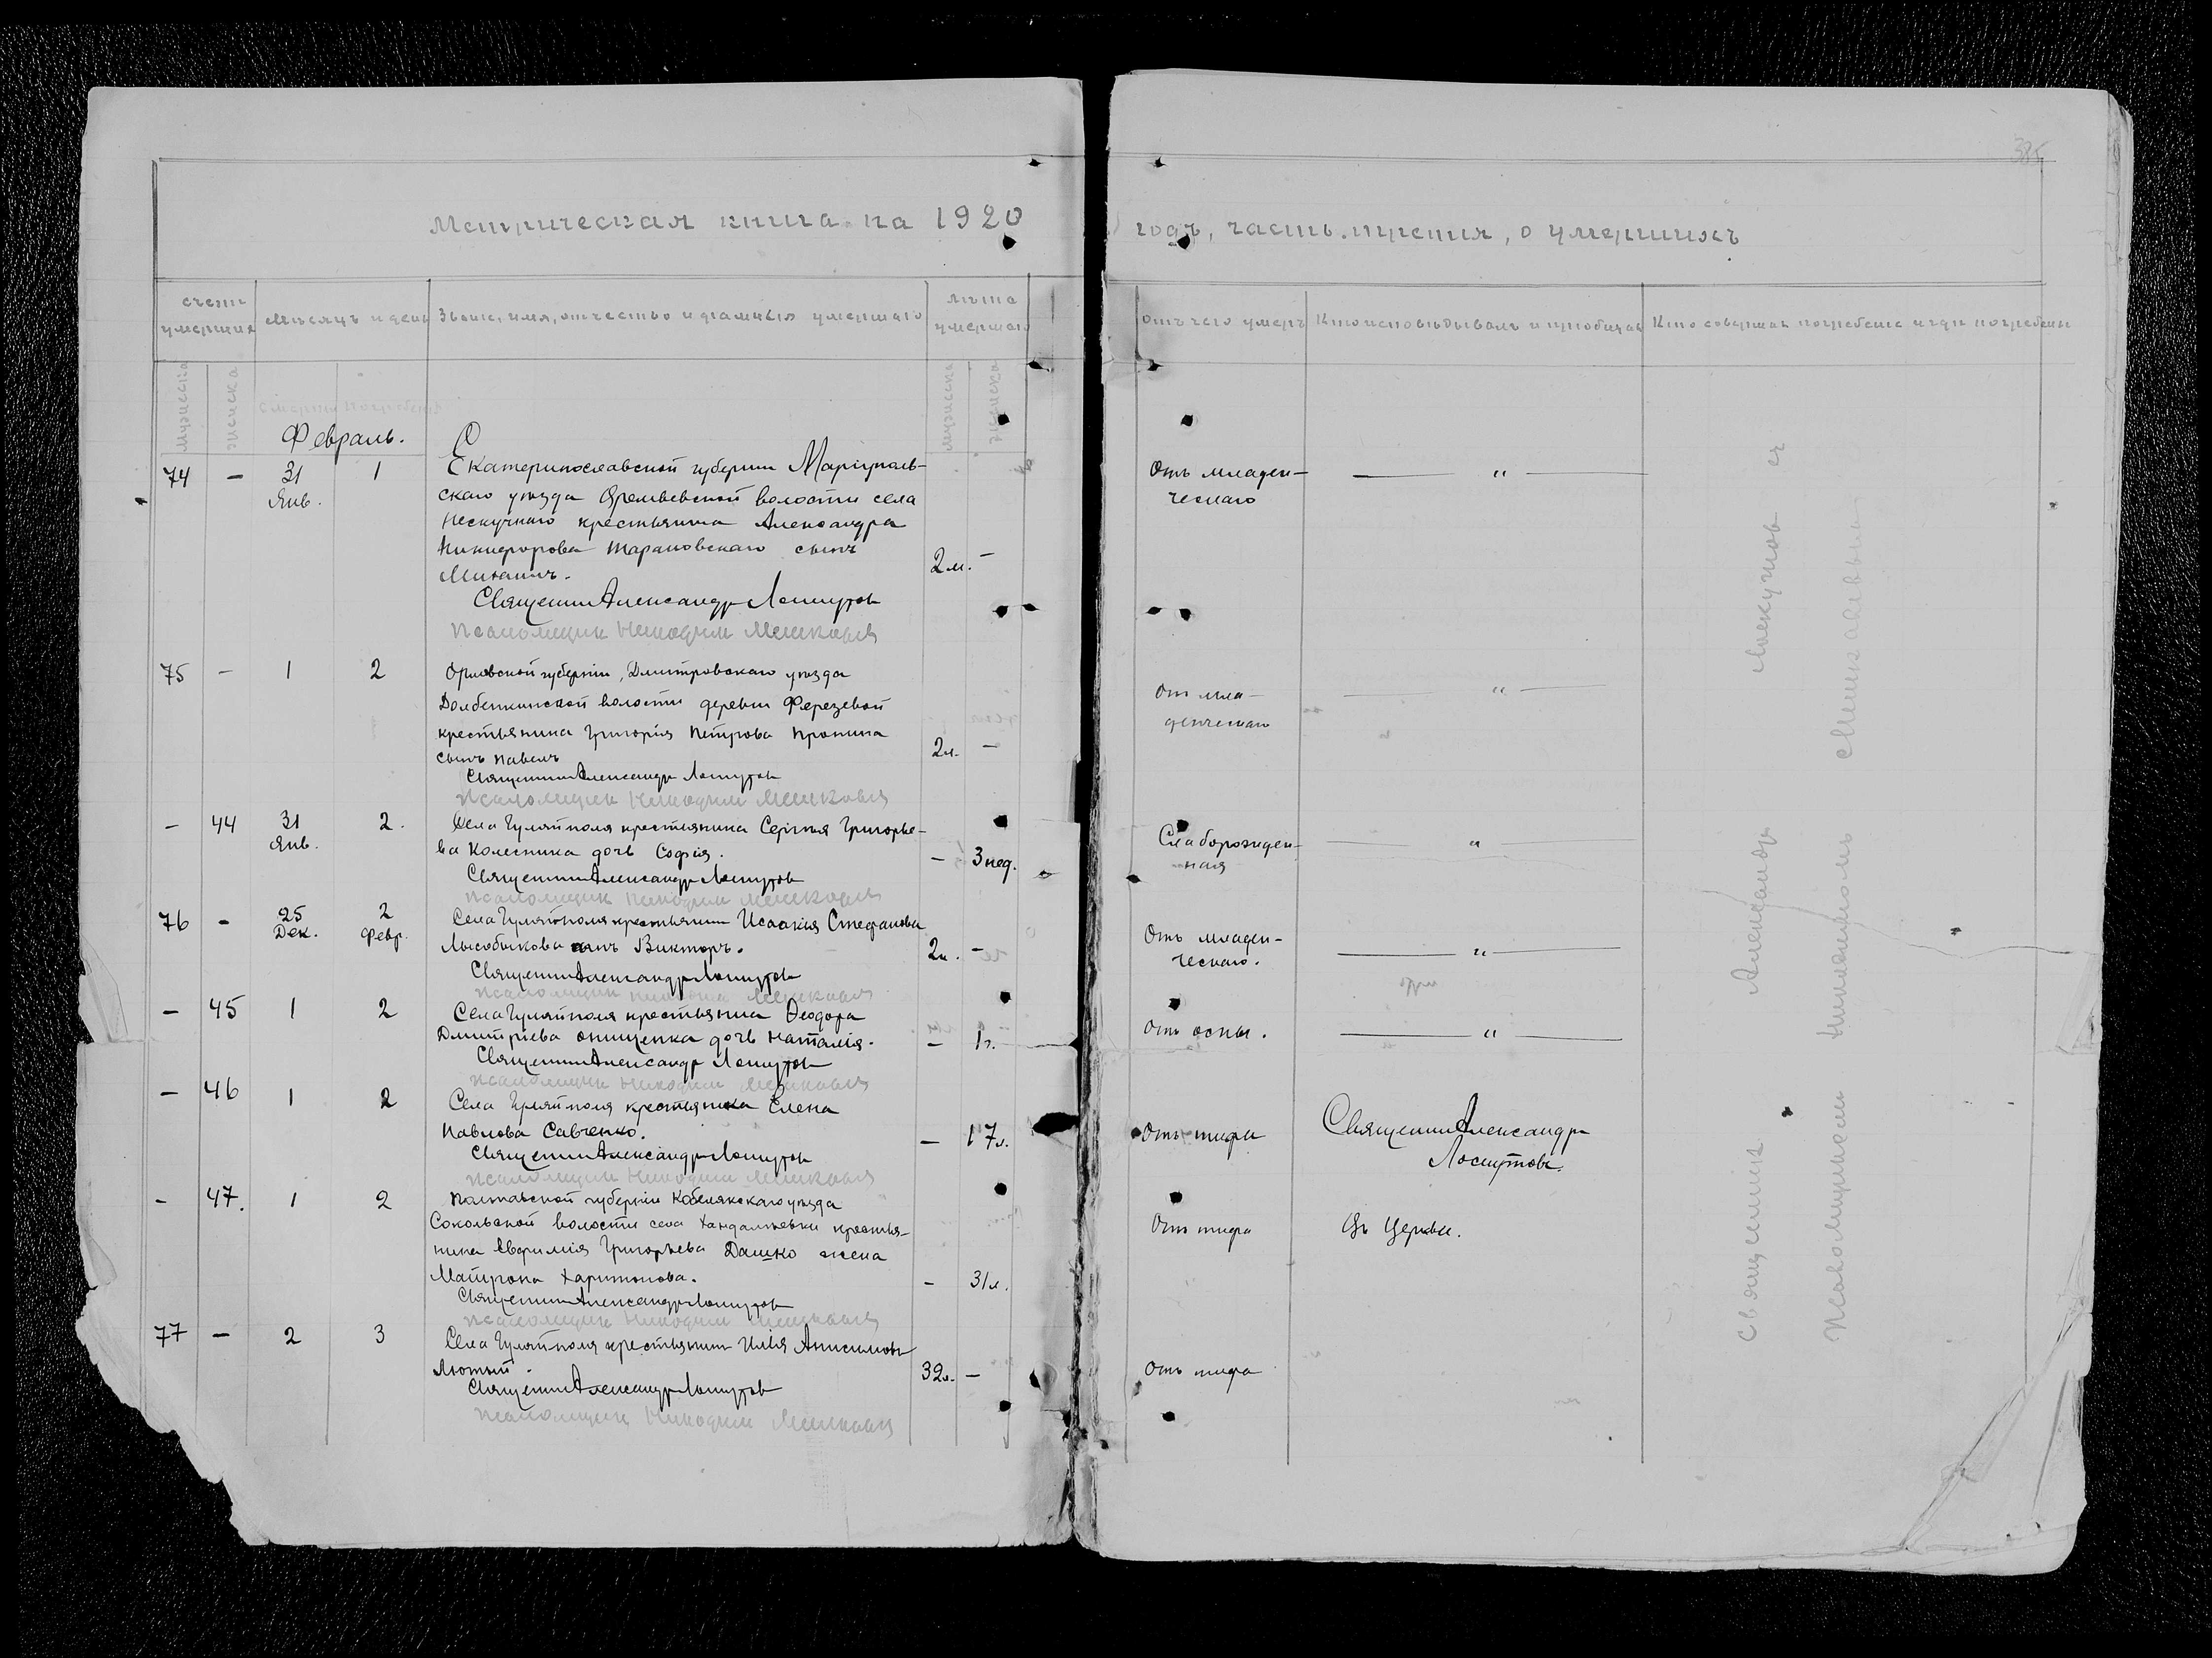 385
Метрическая книга на 1920 годъ, часть третия, о умершихъ
счетъ умершихъ
Мѣсяцъ и день
Званіе, имя, отчество и фамилія умершаго
лѣта умершаго
отъ чего умеръ
Кто исповѣдывалъ и пріобщалъ
Кто совершалъ погребеніе и гдѣ погребены
мужеска
женска
смерти
погребенія
мужеска
женска
Февраль.
74 — 31 Янв. 1
Екатеринославской губерніи Маріуполь-
скаго уѣзда Времьевской волости села
Нескучнаго крестьянина Александра
Никифорова Тарановскаго сынъ
Михаилъ.
2 м. —
Отъ младен-
ческаго
— " —
Священникъ Александръ Лоскутовъ
Псаломщикъ Никодимъ
75 — 1 2
Орловской губерніи, Дмитровскаго уѣзда
Долбенкинской волости деревни Ферезевой
крестьянина Григорія Петрова Пронина
сынъ Павелъ
2 м. —
Отъ мла-
денческаго
— " —
Священникъ Александръ Лоскутовъ
Псаломщикъ Никодимъ
— 44 31 Янв. 2.
Села Гуляйполя крестьянина Сергѣя Григорье-
ва Колесника дочь Софія.
— 3 нед.
Слаборожден-
ная
— " —
Священникъ Александръ Лоскутовъ
Псаломщикъ Никодимъ
76 — 25 Дек. 2 Февр.
Села Гуляйполя крестьянина Исаакія Стефанова
Лысобыкова сынъ Викторъ.
2 м. —
Отъ младен-
ческаго.
— " —
Священникъ Александръ Лоскутовъ
Псаломщикъ Никодимъ
— 45 1 2
Села Гуляйполя крестьянина Ѳеодора
Дмитріева Онищенка дочь Наталія.
— 1 г.
Отъ оспы.
— " —
Священникъ Александръ Лоскутовъ
Псаломщикъ Никодимъ
— 46 1 2
Села Гуляйполя крестьянка Елена
Павлова Савченко.
— 17 л.
Отъ тифа
Священникъ Александръ
Лоскутовъ.
Священникъ Александръ Лоскутовъ
Псаломщикъ Никодимъ
— 47. 1 2
Полтавской губерніи Кобелякскаго уѣзда
Сокольской волости села Хандалѣевки крестья-
нина Евфимія Григорьева Дашко жена
Матрона Харитонова.
— 31 л.
Отъ тифа
Въ Церкви.
Священникъ Александръ Лоскутовъ
Псаломщикъ Никодимъ
77 — 2 3
Села Гуляйполя крестьянинъ Илія Анисимовъ
Лютый.
32 л. —
Отъ тифа
Священникъ Александръ Лоскутовъ
Псаломщикъ Никодимъ
Священникъ Александръ Лоскутовъ
Псаломщикъ